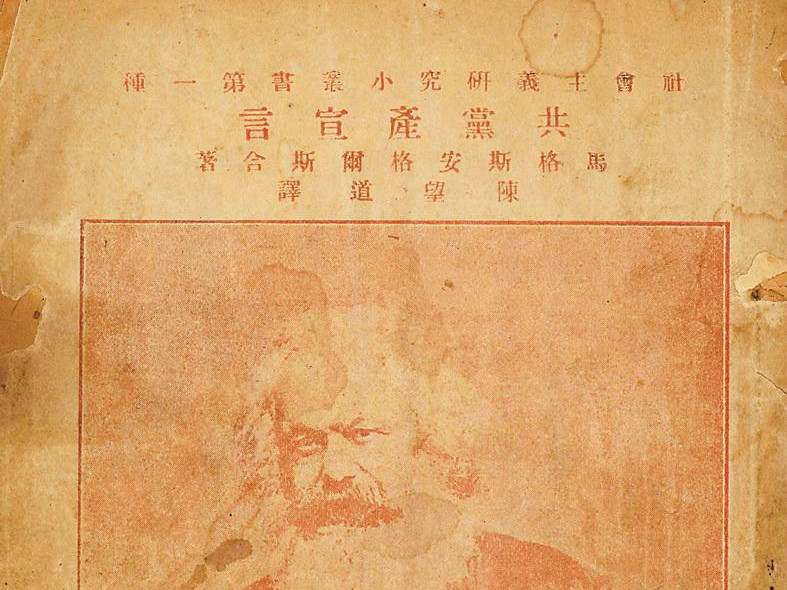 社會主義研究小叢書第一種
共黨產宣言
馬格斯安格爾斯合著
陳望道譯